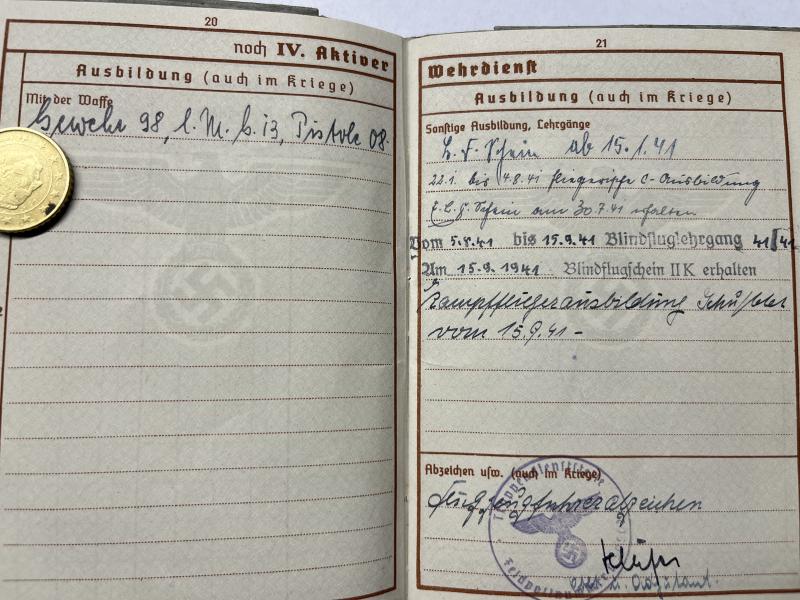 20
noch IV. Aktiver
Ausbildung (auch im Kriege)
Mit der Waffe
Gewehr 98, l. M. G. 13, Pistole 08.
21
Wehrdienst
Ausbildung (auch im Kriege)
Sonstige Ausbildung, Lehrgänge
L. F. Schein ab 15.1.41
22.1. bis 4.8.41 fliegerische C-Ausbildung
Schein am 30.7.41 erhalten
Vom 5.8.41 bis 15.9.41 Blindfluglehrgang 41/41
Am 15.9.1941 Blindflugschein II K erhalten
Kampffliegerausbildung
vom 15.9.41 -
Abzeichen usw. (auch im Kriege)
Flugzeugführerabzeichen
u. Adjutant.